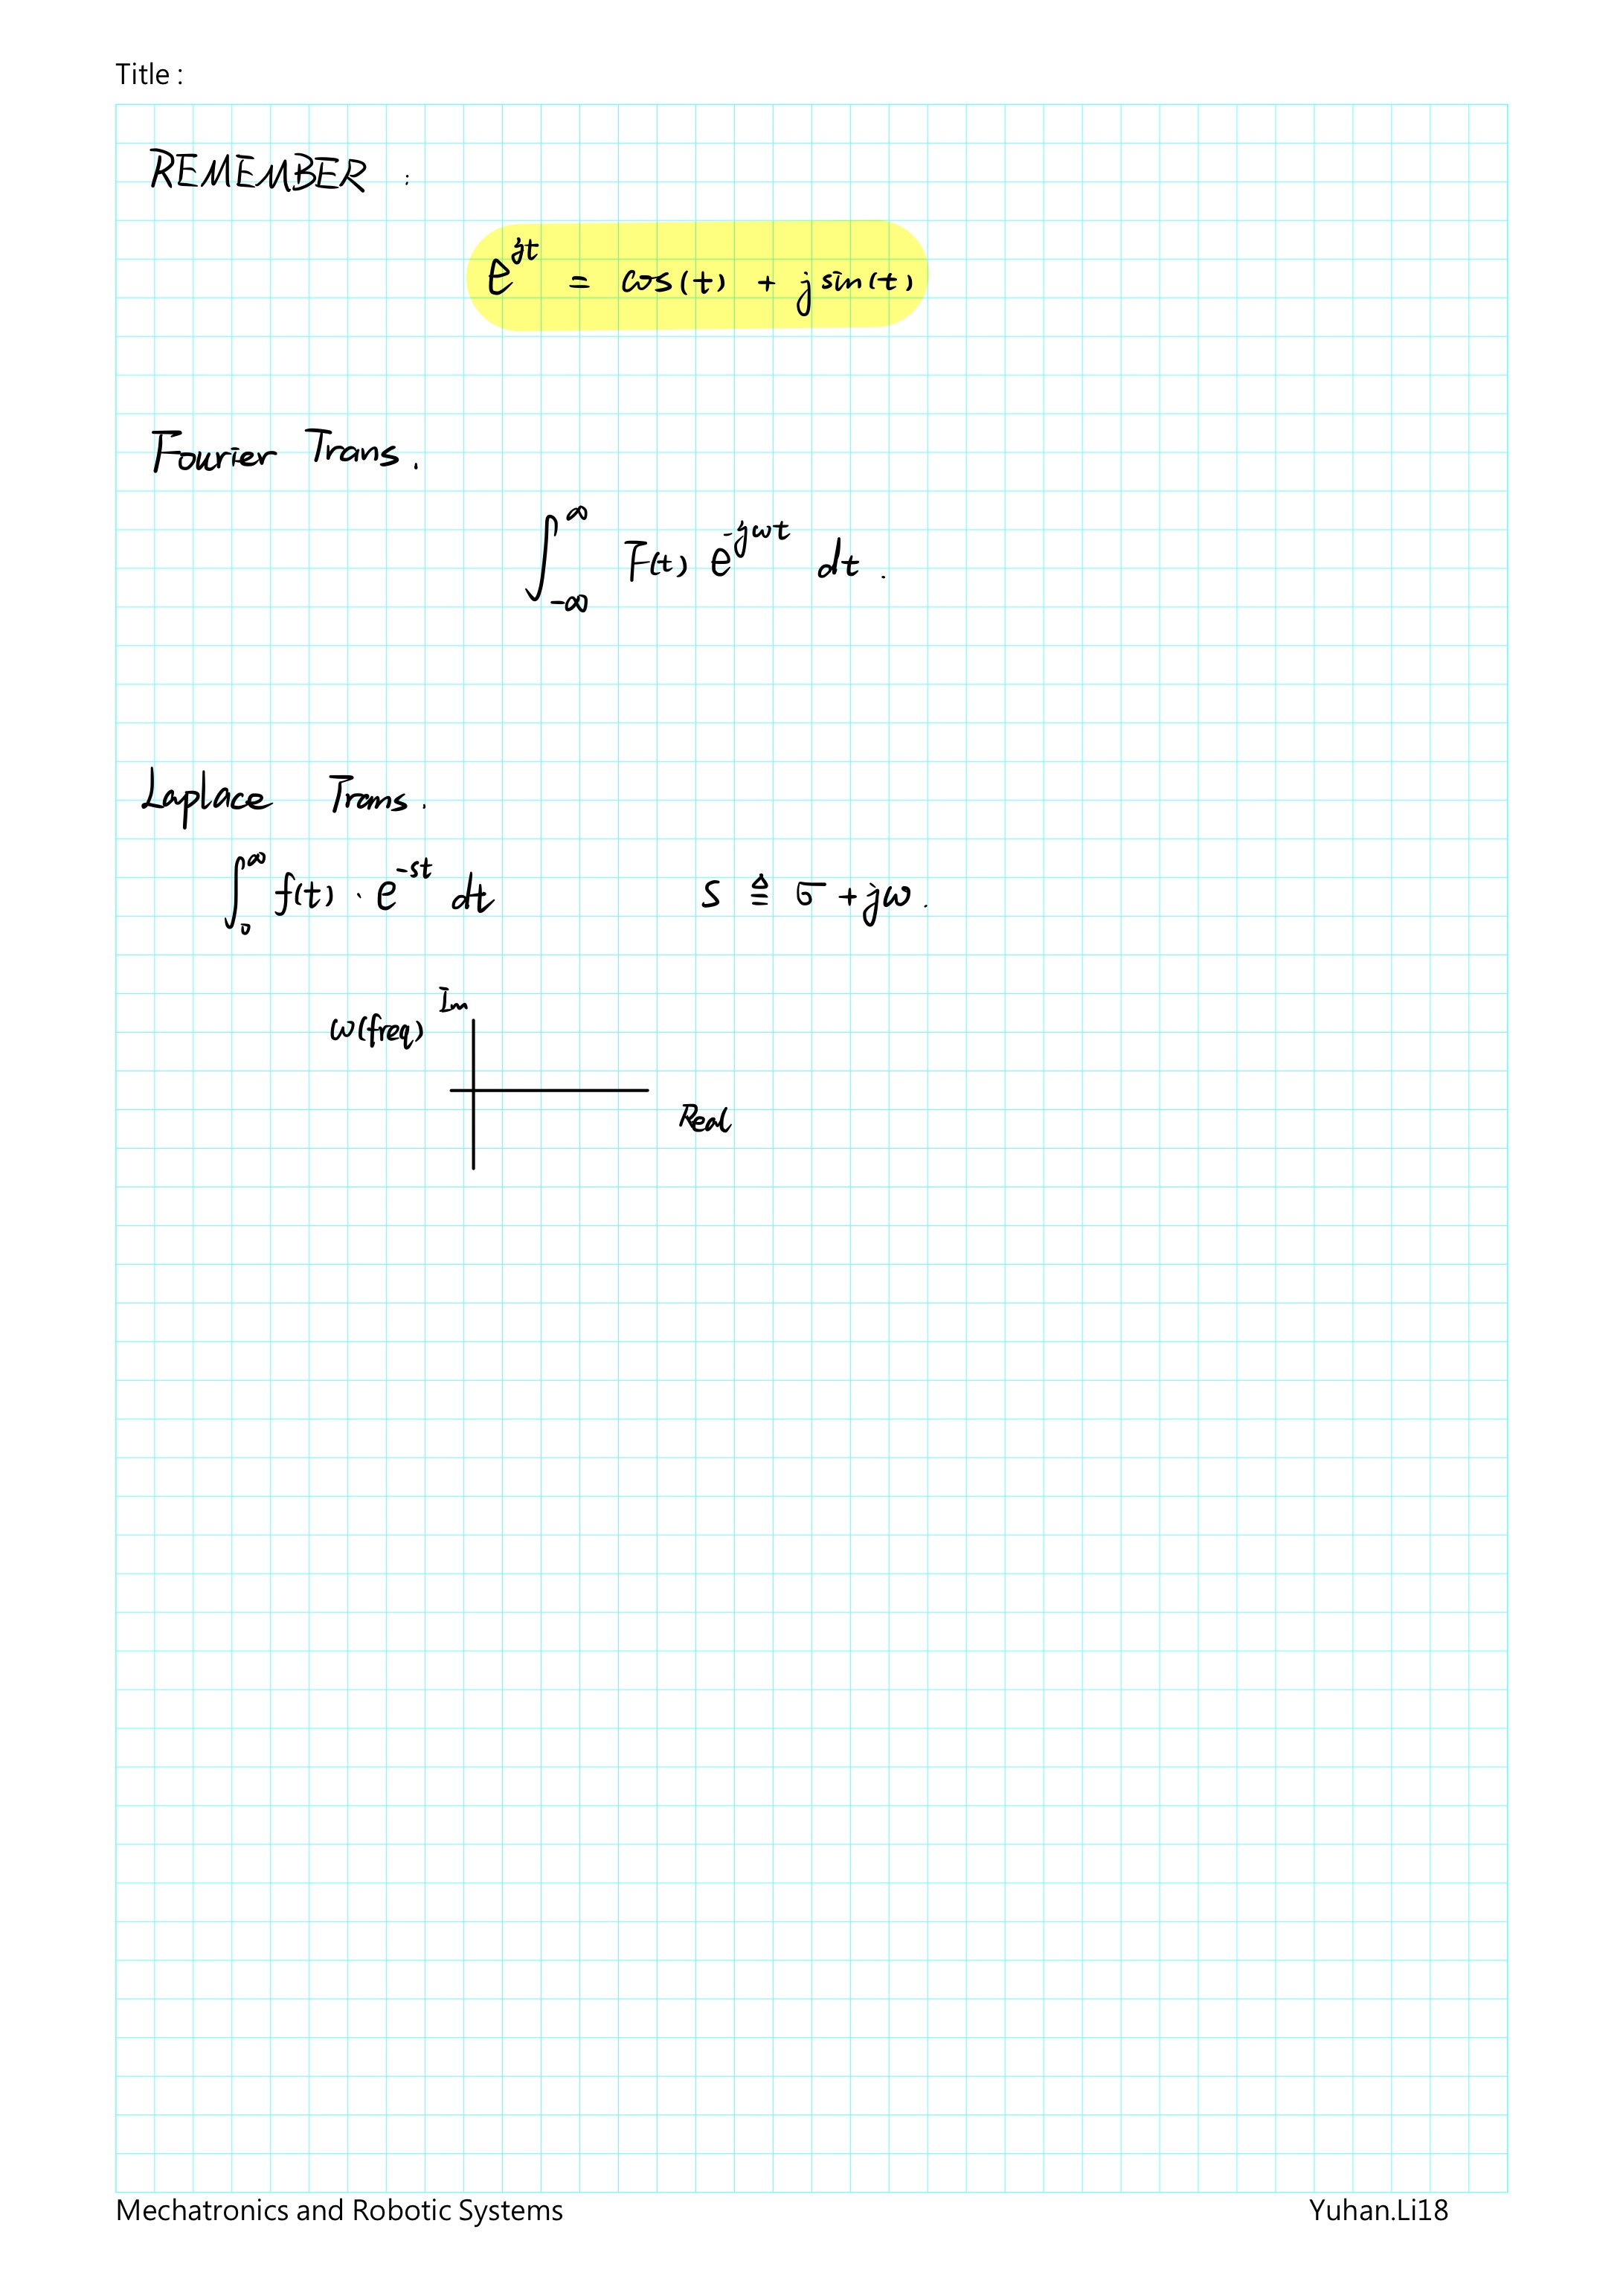 Title :
REMEMBER :
e^{jt} = cos(t) + j sin(t)
Fourier Trans.
∫_{-∞}^{∞} F(t) e^{-jωt} dt.
Laplace Trans.
∫_{0}^{∞} f(t) · e^{-st} dt    S ≜ σ + jω.
Im
ω(freq)
Real
Mechatronics and Robotic Systems    Yuhan.Li18